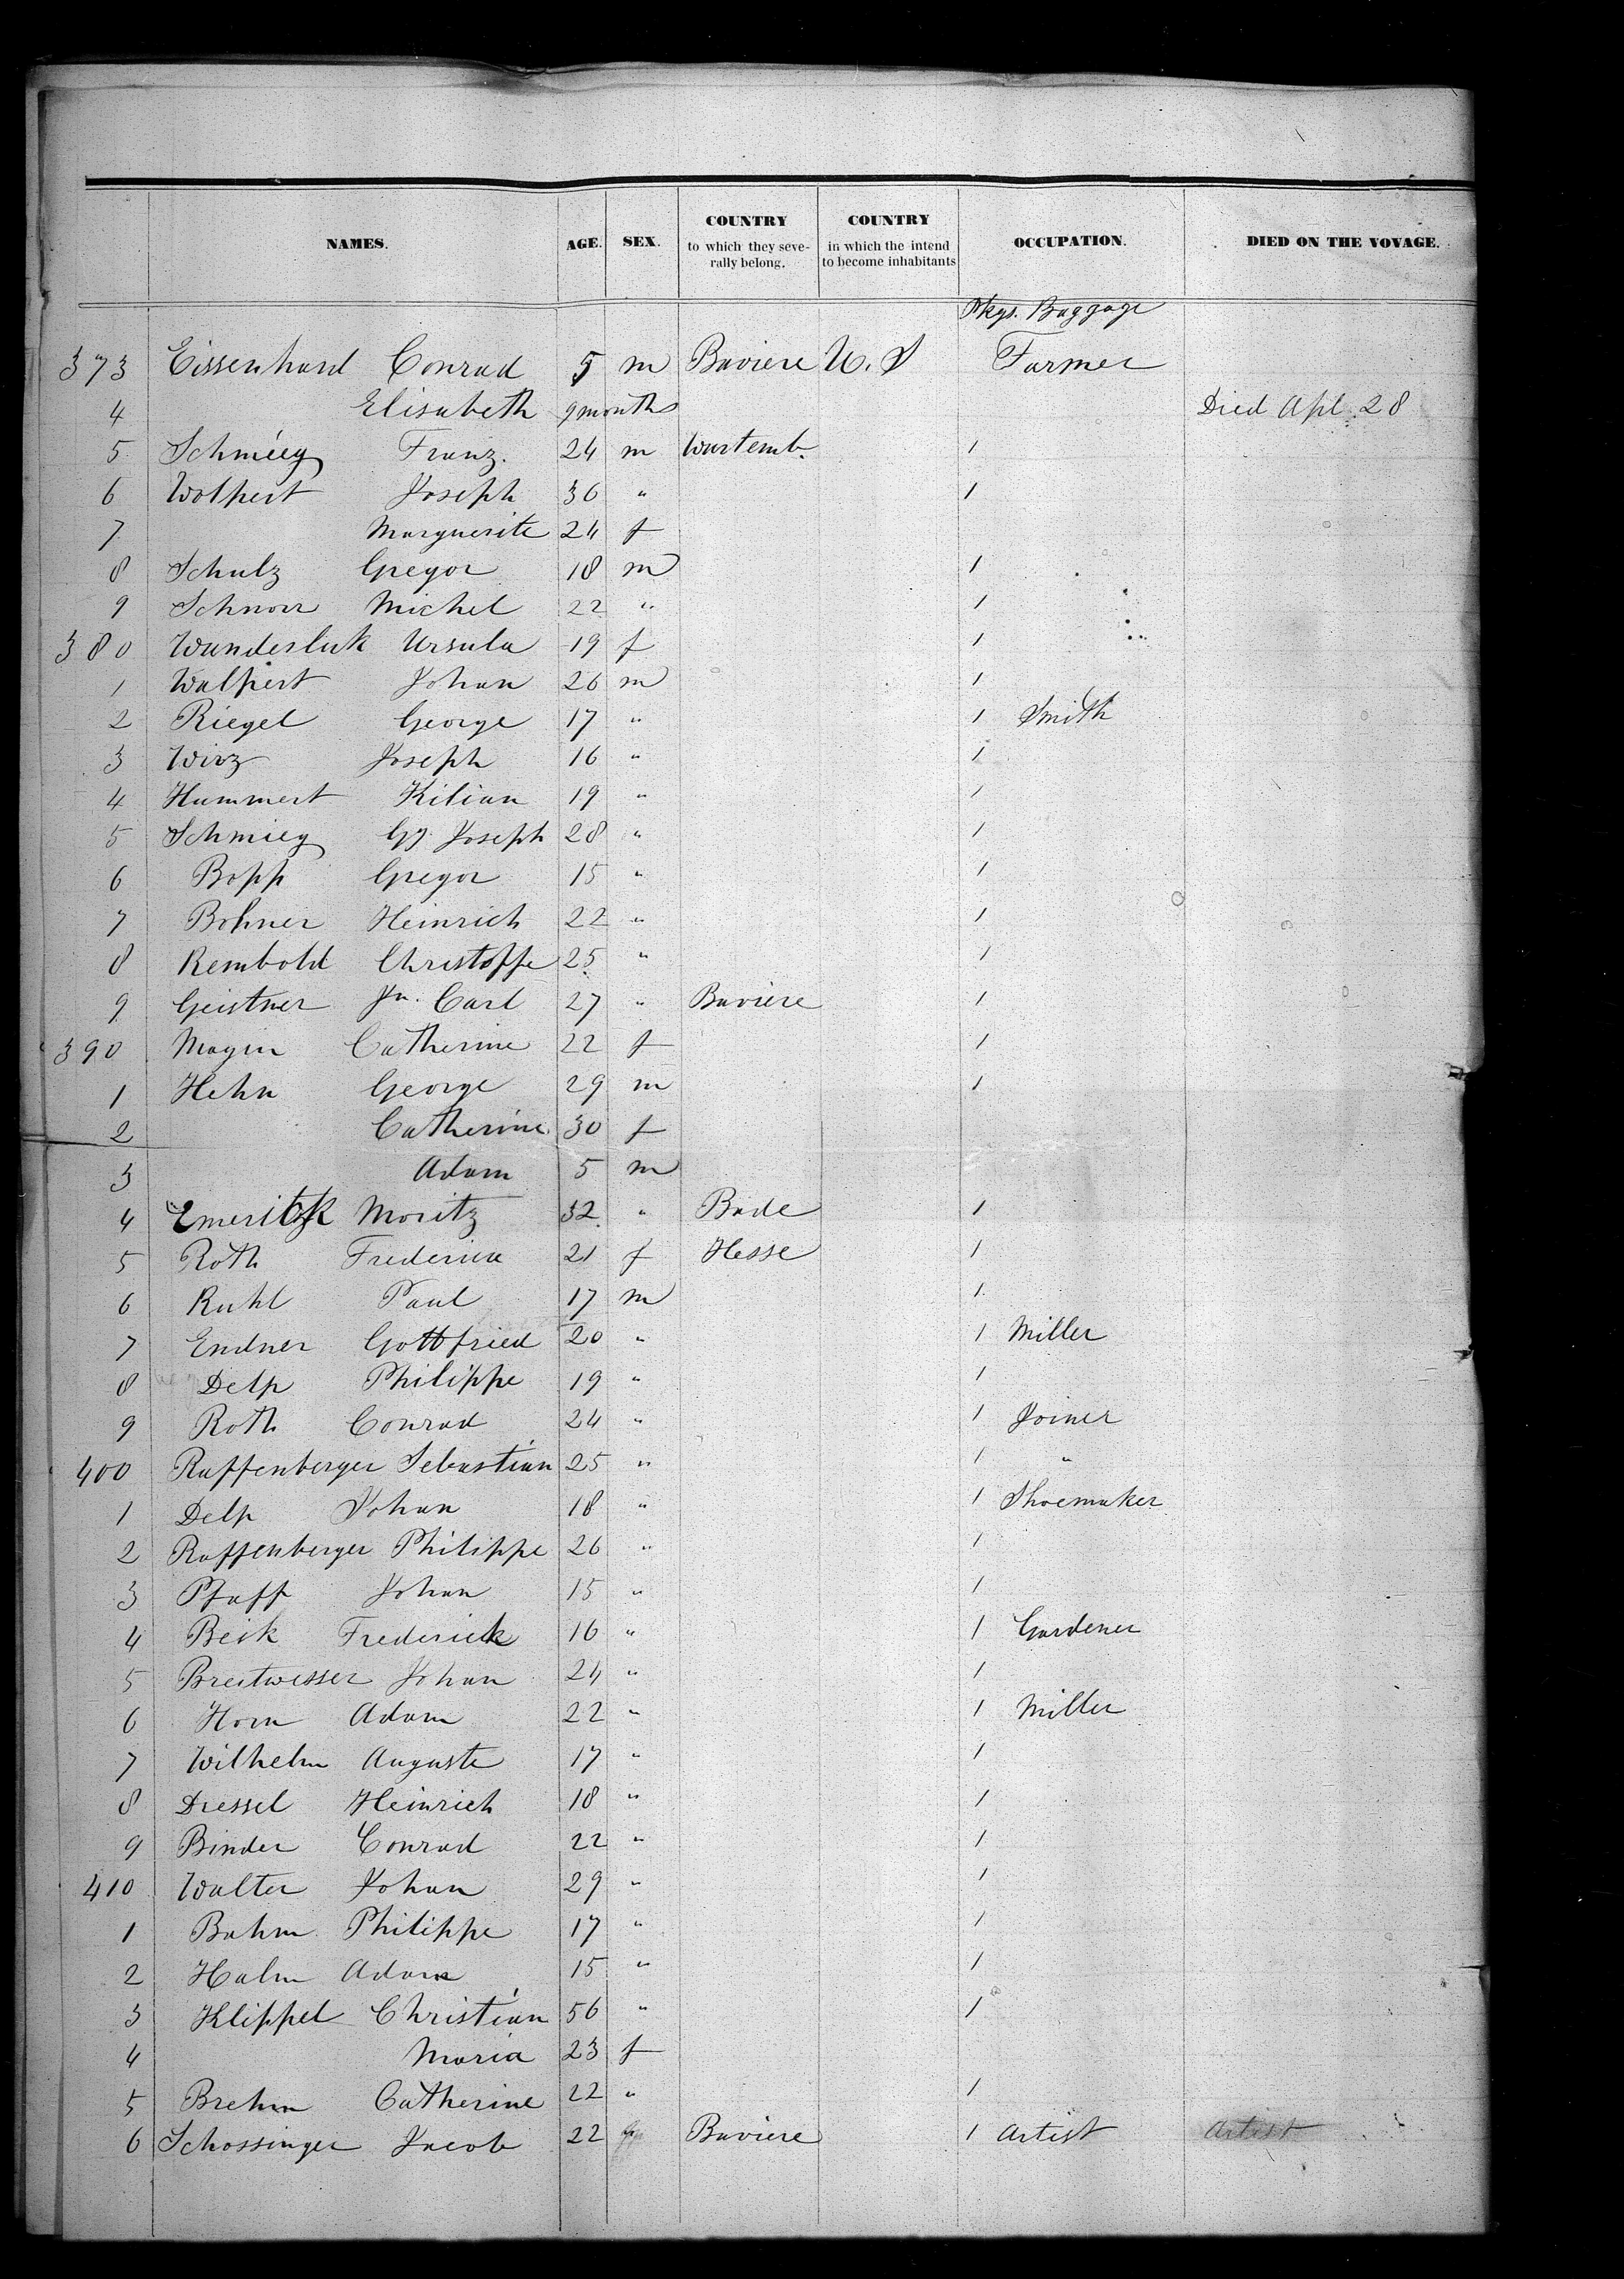 NAMES. AGE. SEX. COUNTRY to which they seve-rally belong. COUNTRY in which the intend to become inhabitants OCCUPATION. DIED ON THE VOYAGE.
Pkgs. Baggage
373 Eissenhard Conrad 5 m Baviere U. S Farmer
4 Elisabeth 9 months Died Apl. 28
5 Schmieg Franz. 24 m Wurtemb. 1
6 Wolpert Joseph 36 " 1
7 Marguerite 24 f
8 Schulz Gregor 18 m 1
9 Schnorr Michel 22 " 1
380 Wunderlick Ursula 19 f 1
1 Walpert Johan 26 m 1
2 Riegel George 17 " 1 Smith
3 Wirz Joseph 16 " 1
4 Hummert Kilian 19 " 1
5 Schmieg Gg. Joseph 28 " 1
6 Bopp Gregor 15 " 1
7 Bohner Heinrich 22 " 1
8 Rembold Christoffe 25 " 1
9 Geistner Jn. Carl 27 " Baviere 1
390 Magin Catherine 22 f 1
1 Hehn George 29 m 1
2 Catherine 30 f
3 Adam 5 m
4 Moritz 32 " Bade 1
5 Roth Frederica 21 f Hesse 1
6 Ruhl Paul 17 m 1
7 Endner Gottfried 20 " 1 Miller
8 Delp Philippe 19 " 1
9 Roth Conrad 24 " 1 Joiner
400 Raffenberger Sebastian 25 " 1 "
1 Delp Johan 18 " 1 Shoemaker
2 Raffenberger Philippe 26 " 1
3 Pfaff Johan 15 " 1
4 Beik Frederick 16 " 1 Gardener
5 Breitwesser Johan 24 " 1
6 Horn Adam 22 " 1 Miller
7 Wilhelm Auguste 17 " 1
8 Dressel Heinrich 18 " 1
9 Binder Conrad 22 " 1
410 Walter Johan 29 " 1
1 Bahm Philippe 17 " 1
2 Halm Adam 15 " 1
3 Klippel Christian 56 " 1
4 Maria 23 f
5 Brehm Catherine 22 " 1
6 Schossinger Jacob 22 Baviere 1 Artist Artist